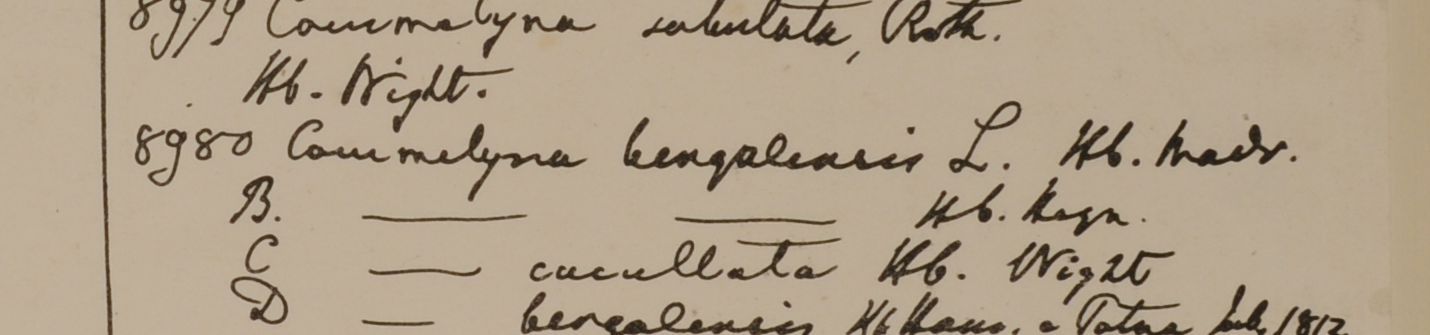 8979 Commelyna subulata, Roth.
Hb. Wight.
8980 Commelyna bengalensis L. Hb. Madr.
B. —— —— Hb. Heyn.
C —— cucullata Hb. Wight
D — bengalensis Hb Ham. e Patna July 1812